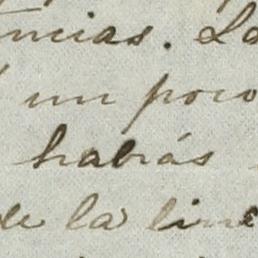 ncias. La
un poco
habrás
de la line